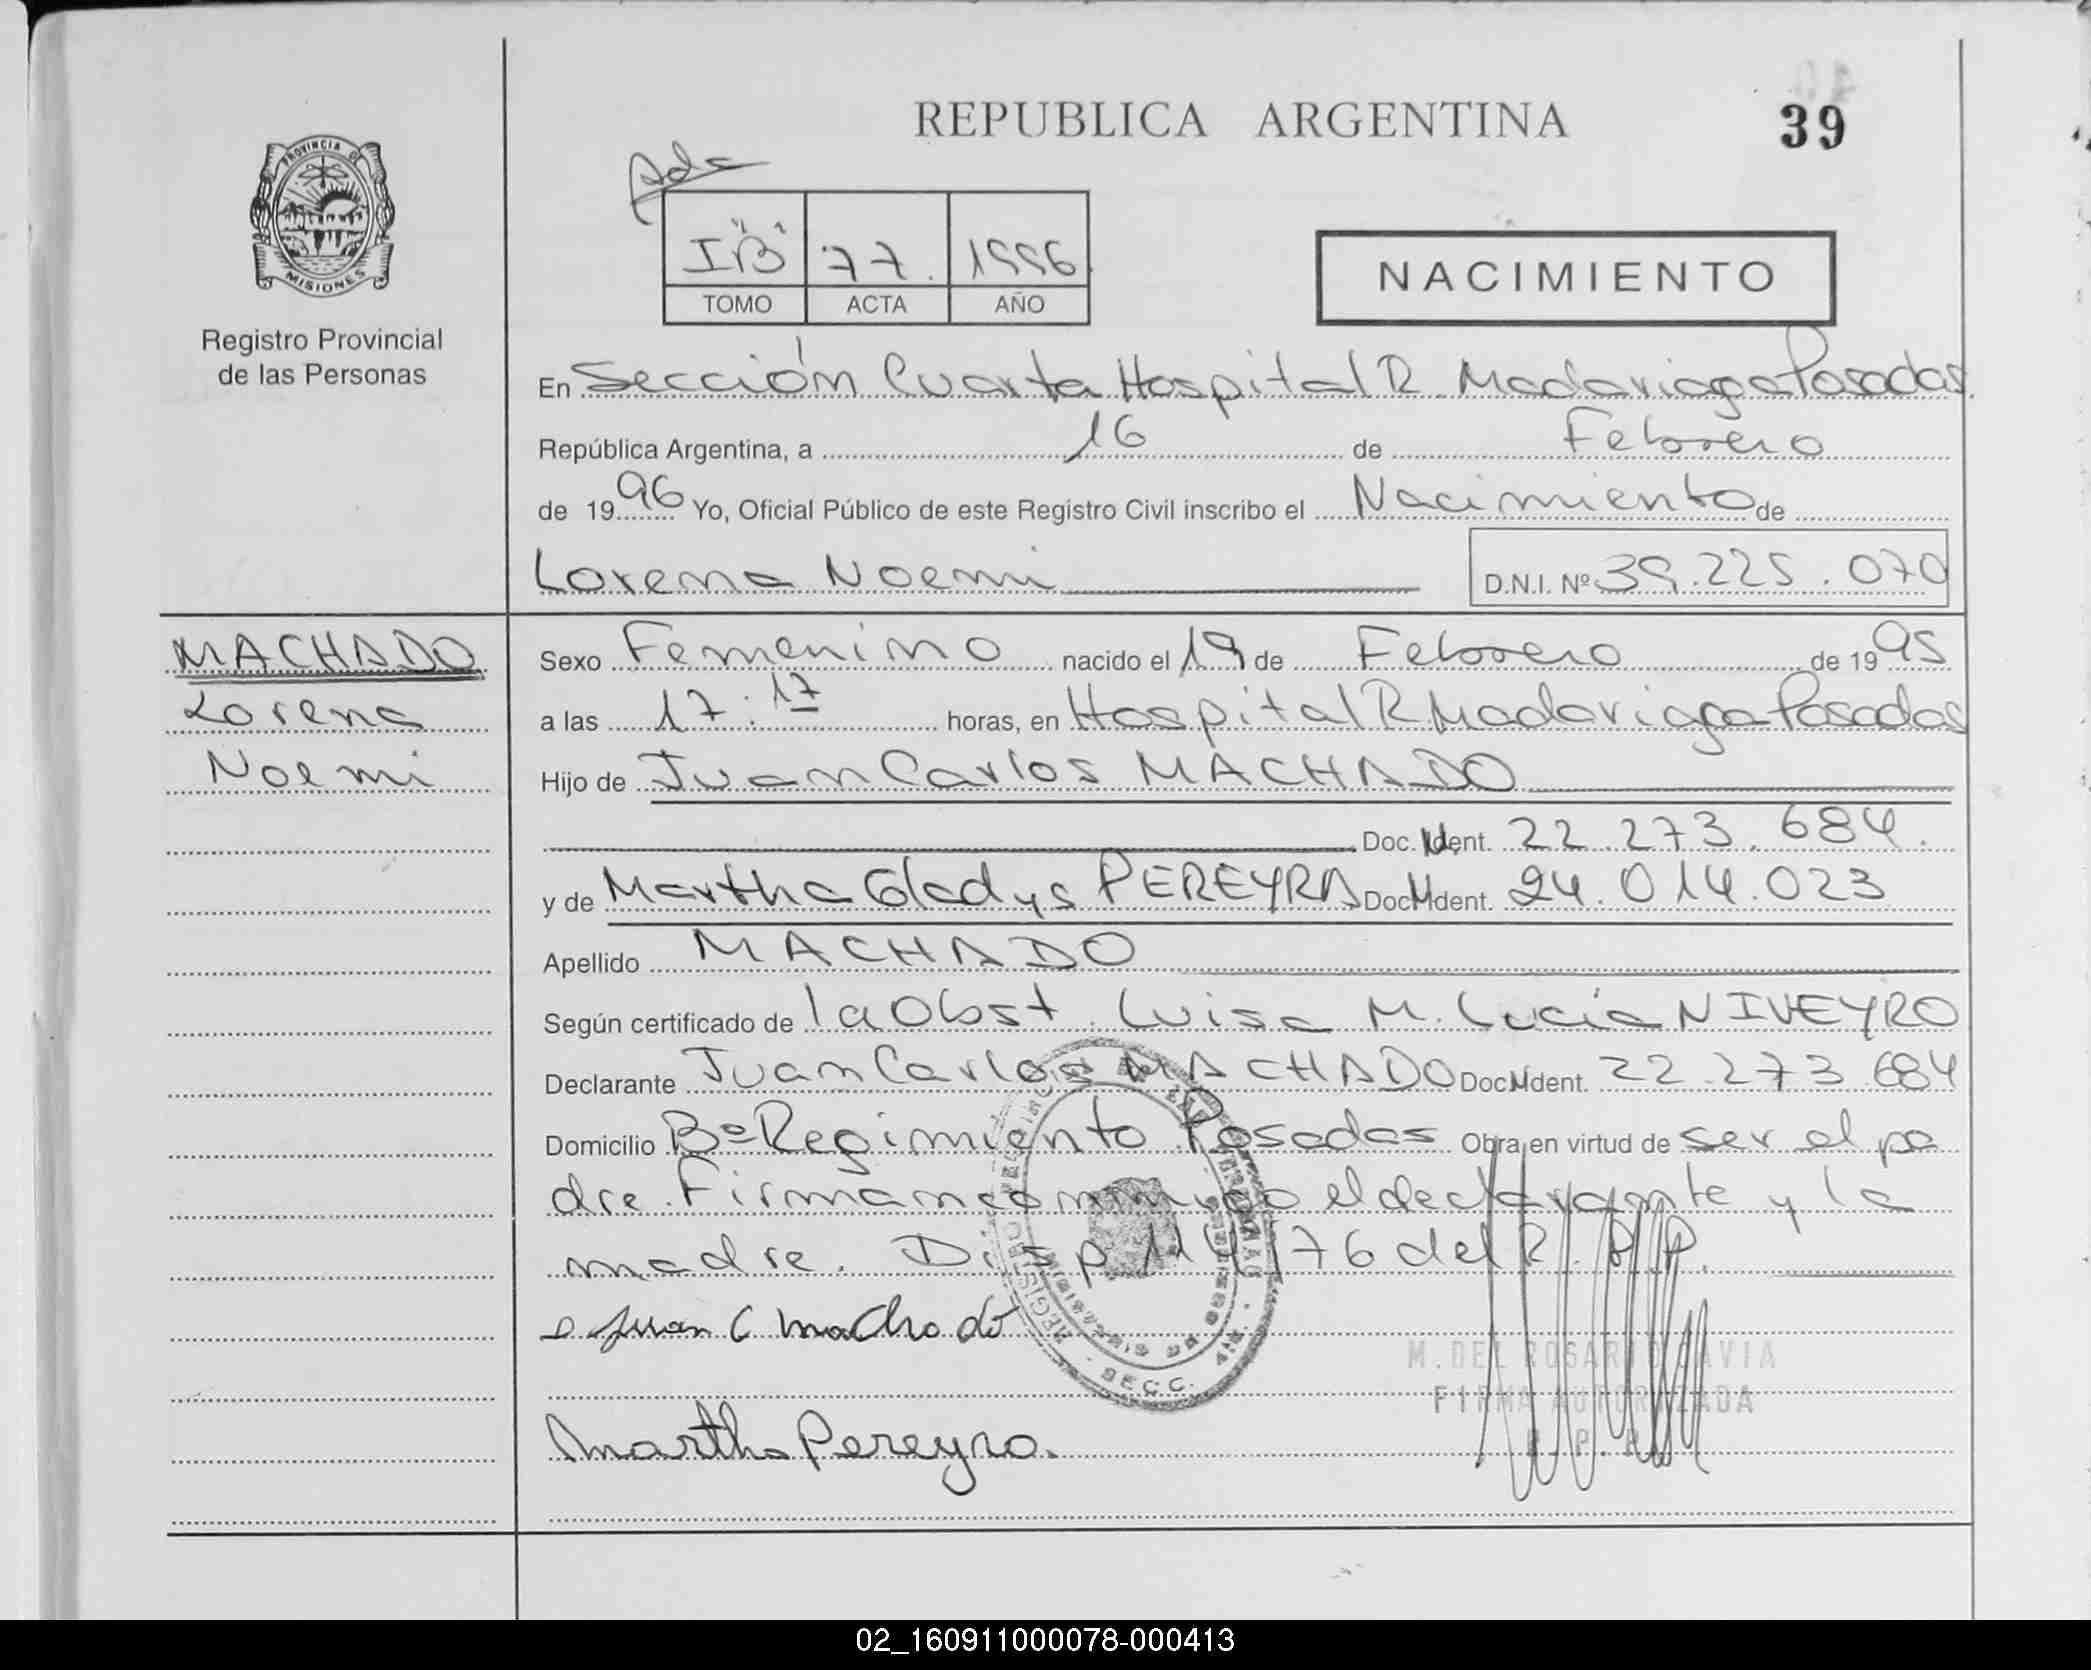 REPUBLICA ARGENTINA
39
PROVINCIA DE
MISIONES
Registro Provincial
de las Personas
I "B" 77. 1996
TOMO ACTA AÑO
NACIMIENTO
En Sección Cuarta Hospital R. Madariaga Posadas
República Argentina, a 16 de Febrero
de 1996 Yo, Oficial Público de este Registro Civil inscribo el Nacimiento de
Lorena Noemi D.N.I. Nº 39.225.070
MACHADO
Lorena
Noemi
Sexo Femenino nacido el 19 de Febrero de 1995
a las 17:17 horas, en Hospital R. Madariaga Posadas
Hijo de Juan Carlos MACHADO
Doc. Ident. 22.273.684.
y de Martha Gladys PEREYRA Doc. Ident. 24.014.023
Apellido MACHADO
Según certificado de la Obst. Luisa M. Lucía NIVEYRO
Declarante Juan Carlos MACHADO Doc. Ident. 22.273.684
Domicilio Bº Regimiento Posadas Obra en virtud de ser el pa
dre. Firman conmigo el declarante y la
madre. Disp 114/76 del R.P.P.
Juan C Machado
M. DEL ROSARIO
FIRMA AUTORIZADA
R. P. P.
SECC.
Martha Pereyra.
02_160911000078-000413